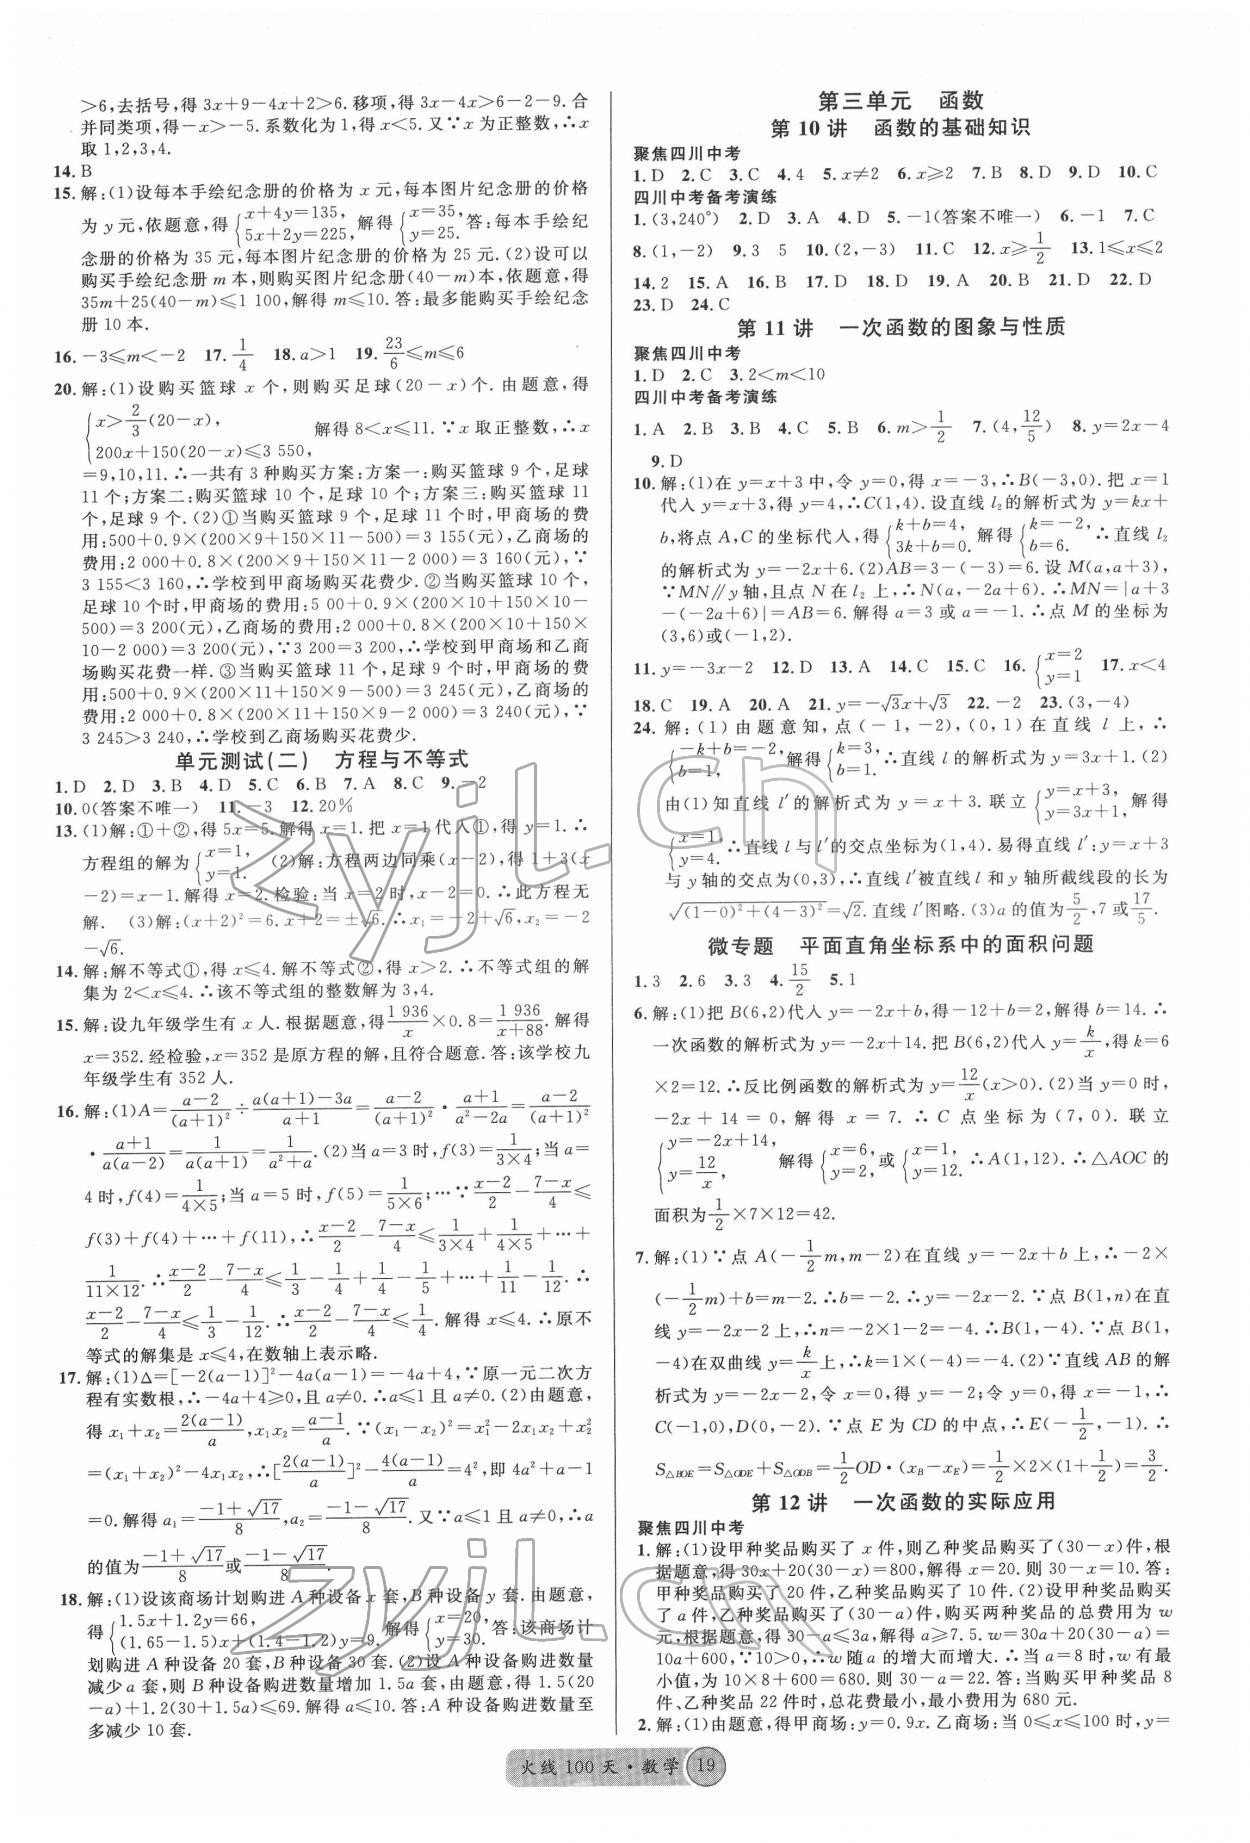 >6,去括号,得 3x+9-4x+2>6. 移项,得 3x-4x>6-2-9. 合
并同类项,得-x>-5. 系数化为 1,得 x<5. 又∵x 为正整数,∴x
取 1,2,3,4.
14. B
15. 解:(1)设每本手绘纪念册的价格为 x 元,每本图片纪念册的价格
为 y 元,依题意,得{x+4y=135, 5x+2y=225, 解得{x=35, y=25. 答:每本手绘纪
念册的价格为 35 元,每本图片纪念册的价格为 25 元. (2)设可以
购买手绘纪念册 m 本,则购买图片纪念册(40-m)本,依题意,得
35m+25(40-m)≤1 100,解得 m≤10. 答:最多能购买手绘纪念
册 10 本.
16. -3≤m<-2 17. 1/4 18. a>1 19. 23/6≤m≤6
20. 解:(1)设购买篮球 x 个,则购买足球(20-x)个. 由题意,得
{x>2/3(20-x), 200x+150(20-x)≤3 550, 解得 8<x≤11. ∵x 取正整数,∴x
=9,10,11. ∴一共有 3 种购买方案:方案一:购买篮球 9 个,足球
11 个;方案二:购买篮球 10 个,足球 10 个;方案三:购买篮球 11
个,足球 9 个. (2)①当购买篮球 9 个,足球 11 个时,甲商场的费
用:500+0.9×(200×9+150×11-500)=3 155(元),乙商场的
费用:2 000+0.8×(200×9+150×11-2 000)=3 160(元),∵
3 155<3 160,∴学校到甲商场购买花费少. ②当购买篮球 10 个,
足球 10 个时,甲商场的费用:5 00+0.9×(200×10+150×10-
500)=3 200(元),乙商场的费用:2 000+0.8×(200×10+150×
10-2 000)=3 200(元),∵3 200=3 200,∴学校到甲商场和乙商
场购买花费一样. ③当购买篮球 11 个,足球 9 个时,甲商场的费
用:500+0.9×(200×11+150×9-500)=3 245(元),乙商场的
费用:2 000+0.8×(200×11+150×9-2 000)=3 240(元),∵
3 245>3 240,∴学校到乙商场购买花费少.
单元测试(二) 方程与不等式
1. D 2. D 3. B 4. D 5. C 6. B 7. A 8. C 9. -2
10. 0(答案不唯一) 11. -3 12. 20%
13. (1)解:①+②,得 5x=5. 解得 x=1. 把 x=1 代入①,得 y=1. ∴
方程组的解为{x=1, y=1. (2)解:方程两边同乘(x-2),得 1+3(x
-2)=x-1. 解得 x=2. 检验:当 x=2 时,x-2=0. ∴此方程无
解. (3)解:(x+2)²=6. x+2=±√6. ∴x₁=-2+√6,x₂=-2
-√6.
14. 解:解不等式①,得 x≤4. 解不等式②,得 x>2. ∴不等式组的解
集为 2<x≤4. ∴该不等式组的整数解为 3,4.
15. 解:设九年级学生有 x 人. 根据题意,得 1 936/x×0.8=1 936/(x+88). 解得
x=352. 经检验,x=352 是原方程的解,且符合题意. 答:该学校九
年级学生有 352 人.
16. 解:(1)A=(a-2)/(a+1)²÷(a(a+1)-3a)/(a+1)=(a-2)/(a+1)²·(a+1)/(a²-2a)=(a-2)/(a+1)²
·(a+1)/(a(a-2))=1/(a(a+1))=1/(a²+a). (2)当 a=3 时,f(3)=1/(3×4);当 a=
4 时,f(4)=1/(4×5);当 a=5 时,f(5)=1/(5×6);…∵(x-2)/2-(7-x)/4≤
f(3)+f(4)+…+f(11),∴(x-2)/2-(7-x)/4≤1/(3×4)+1/(4×5)+…+
1/(11×12). ∴(x-2)/2-(7-x)/4≤1/3-1/4+1/4-1/5+…+1/11-1/12. ∴
(x-2)/2-(7-x)/4≤1/3-1/12. ∴(x-2)/2-(7-x)/4≤1/4. 解得 x≤4. ∴原不
等式的解集是 x≤4,在数轴上表示略.
17. 解:(1)Δ=[-2(a-1)]²-4a(a-1)=-4a+4,∵原一元二次方
程有实数根,∴-4a+4≥0,且 a≠0. ∴a≤1 且 a≠0. (2)由题意,
得 x₁+x₂=2(a-1)/a,x₁x₂=(a-1)/a. ∵(x₁-x₂)²=x₁²-2x₁x₂+x₂²
=(x₁+x₂)²-4x₁x₂,∴[2(a-1)/a]²-4(a-1)/a=4²,即 4a²+a-1
=0. 解得 a₁=(-1+√17)/8,a₂=(-1-√17)/8. 又∵a≤1 且 a≠0,∴a
的值为(-1+√17)/8或(-1-√17)/8.
18. 解:(1)设该商场计划购进 A 种设备 x 套,B 种设备 y 套. 由题意,
得{1.5x+1.2y=66, (1.65-1.5)x+(1.4-1.2)y=9. 解得{x=20, y=30. 答:该商场计
划购进 A 种设备 20 套,B 种设备 30 套. (2)设 A 种设备购进数量
减少 a 套,则 B 种设备购进数量增加 1.5a 套,由题意,得 1.5(20
-a)+1.2(30+1.5a)≤69. 解得 a≤10. 答:A 种设备购进数量至
多减少 10 套.
第三单元 函数
第 10 讲 函数的基础知识
聚焦四川中考
1. D 2. C 3. C 4. 4 5. x≠2 6. x≥2 7. B 8. D 9. D 10. C
四川中考备考演练
1. (3,240°) 2. D 3. A 4. D 5. -1(答案不唯一) 6. -1 7. C
8. (1,-2) 9. 3 5 10. (2,-3) 11. C 12. x≥1/2 13. 1≤x≤2
14. 2 15. A 16. B 17. D 18. D 19. A 20. B 21. D 22. D
23. D 24. C
第 11 讲 一次函数的图象与性质
聚焦四川中考
1. D 2. C 3. 2<m<10
四川中考备考演练
1. A 2. B 3. B 4. C 5. B 6. m>1/2 7. (4,12/5) 8. y=2x-4
9. D
10. 解:(1)在 y=x+3 中,令 y=0,得 x=-3,∴B(-3,0). 把 x=1
代入 y=x+3,得 y=4,∴C(1,4). 设直线 l₂的解析式为 y=kx+
b,将点 A,C 的坐标代入,得{k+b=4, 3k+b=0. 解得{k=-2, b=6. ∴直线 l₂
的解析式为 y=-2x+6. (2)AB=3-(-3)=6. 设 M(a,a+3),
∵MN∥y 轴,且点 N 在 l₂ 上,∴N(a,-2a+6). ∴MN=|a+3
-(-2a+6)|=AB=6. 解得 a=3 或 a=-1. ∴点 M 的坐标为
(3,6)或(-1,2).
11. y=-3x-2 12. D 13. A 14. C 15. C 16. {x=2 y=1 17. x<4
18. C 19. A 20. A 21. y=-√3x+√3 22. -2 23. (3,-4)
24. 解:(1)由题意知,点(-1,-2),(0,1)在直线 l 上,∴
{-k+b=-2, b=1, 解得{k=3, b=1. ∴直线 l 的解析式为 y=3x+1. (2)
由(1)知直线 l′的解析式为 y=x+3. 联立{y=x+3, y=3x+1, 解得
{x=1, y=4. ∴直线 l 与 l′的交点坐标为(1,4). 易得直线 l′:y=x+3
与 y 轴的交点为(0,3),∴直线 l′被直线 l 和 y 轴所截线段的长为
√((1-0)²+(4-3)²)=√2. 直线 l′图略. (3)a 的值为5/2,7 或17/5.
微专题 平面直角坐标系中的面积问题
1. 3 2. 6 3. 3 4. 15/2 5. 1
6. 解:(1)把 B(6,2)代入 y=-2x+b,得-12+b=2,解得 b=14. ∴
一次函数的解析式为 y=-2x+14. 把 B(6,2)代入 y=k/x,得 k=6
×2=12. ∴反比例函数的解析式为 y=12/x(x>0). (2)当 y=0 时,
-2x+14=0,解得 x=7. ∴C 点坐标为(7,0). 联立
{y=-2x+14, y=12/x, 解得{x=6, y=2, 或{x=1, y=12. ∴A(1,12). ∴△AOC 的
面积为1/2×7×12=42.
7. 解:(1)∵点 A(-1/2m,m-2)在直线 y=-2x+b 上,∴-2×
(-1/2m)+b=m-2. ∴b=-2. ∴y=-2x-2. ∵点 B(1,n)在直
线 y=-2x-2 上,∴n=-2×1-2=-4. ∴B(1,-4). ∵点 B(1,
-4)在双曲线 y=k/x上,∴k=1×(-4)=-4. (2)∵直线 AB 的解
析式为 y=-2x-2,令 x=0,得 y=-2;令 y=0,得 x=-1,∴
C(-1,0),D(0,-2). ∵点 E 为 CD 的中点,∴E(-1/2,-1). ∴
S△BOE=S△ODE+S△ODB=1/2OD·(x_B-x_E)=1/2×2×(1+1/2)=3/2.
第 12 讲 一次函数的实际应用
聚焦四川中考
1. 解:(1)设甲种奖品购买了 x 件,则乙种奖品购买了(30-x)件,根
据题意,得 30x+20(30-x)=800,解得 x=20. 则 30-x=10. 答:
甲种奖品购买了 20 件,乙种奖品购买了 10 件. (2)设甲种奖品购买
了 a 件,乙种奖品购买了(30-a)件,购买两种奖品的总费用为 w
元,根据题意,得 30-a≤3a,解得 a≥7.5. w=30a+20(30-a)=
10a+600,∵10>0,∴w 随 a 的增大而增大. ∴当 a=8 时,w 有最
小值,为 10×8+600=680. 则 30-a=22. 答:当购买甲种奖品 8
件、乙种奖品 22 件时,总花费最小,最小费用为 680 元.
2. 解:(1)由题意,得甲商场:y=0.9x. 乙商场:当 0≤x≤100 时,y=
火线 100 天·数学 19
zyjl.cn
zyjl.cn